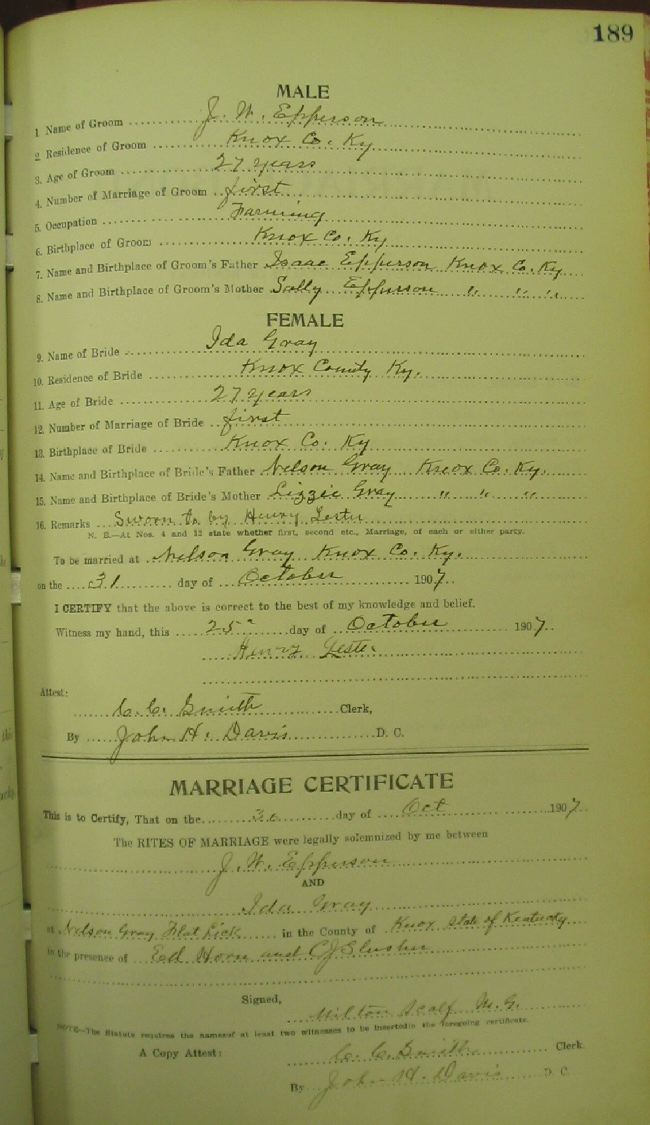 189
MALE
1 Name of Groom J. W. Epperson
2 Residence of Groom Knox Co. Ky
3. Age of Groom 27 years
4. Number of Marriage of Groom first
5. Occupation Farming
6. Birthplace of Groom Knox Co. Ky
7. Name and Birthplace of Groom's Father Isaac Epperson Knox Co. Ky
8. Name and Birthplace of Groom's Mother Sally Epperson " " "
FEMALE
9. Name of Bride Ida Gray
10. Residence of Bride Knox County Ky.
11. Age of Bride 27 years
12. Number of Marriage of Bride first
13. Birthplace of Bride Knox Co. Ky
14. Name and Birthplace of Bride's Father Nelson Gray Knox Co. Ky.
15. Name and Birthplace of Bride's Mother Lizzie Gray " " "
16. Remarks Sworn to by Henry Lester
N. B.—At Nos. 4 and 12 state whether first, second etc., Marriage, of each or either party.
To be married at Nelson Gray Knox Co. Ky.
on the 31 day of October 1907
I CERTIFY that the above is correct to the best of my knowledge and belief.
Witness my hand, this 25" day of October 1907
Henry Lester
Attest:
C. C. Smith Clerk,
By John H. Davis D. C.
MARRIAGE CERTIFICATE
This is to Certify, That on the day of Oct 1907
The RITES OF MARRIAGE were legally solemnized by me between
J. W. Epperson
AND
Ida Gray
at Nelson Gray Flat Lick in the County of Knox State of Kentucky
in the presence of Ed Horn and C J Slusher
Signed,
Milton Scalf M. G.
NOTE—The Statute requires the names of at least two witnesses to be inserted in the foregoing certificate.
A Copy Attest: C. C. Smith Clerk
By John H. Davis D. C.